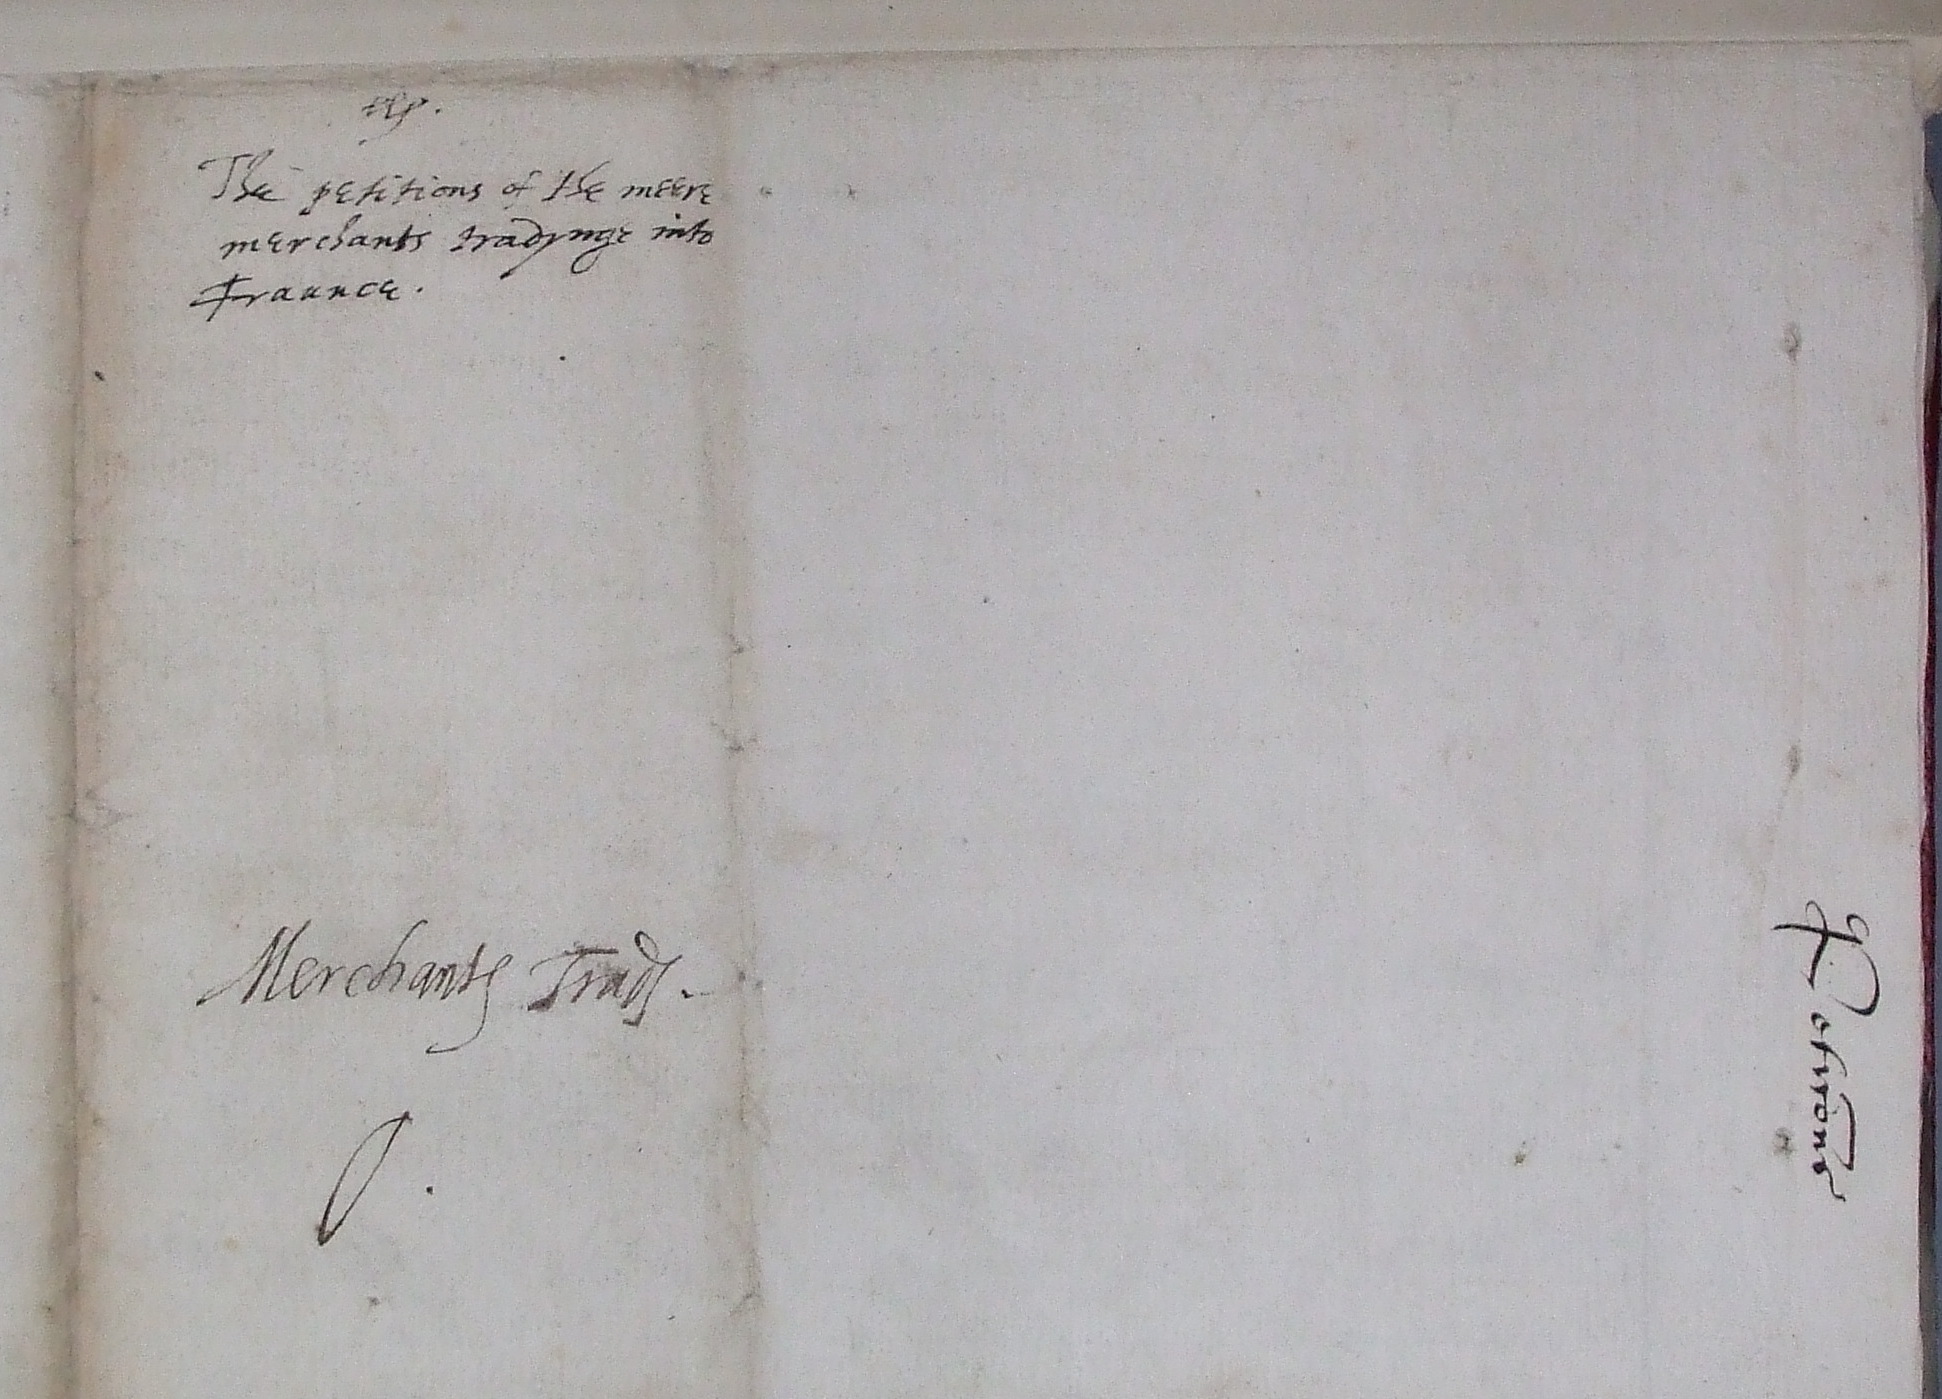 The petitions of the meere
merchants tradynge into
ffraunce.
Merchants Trad